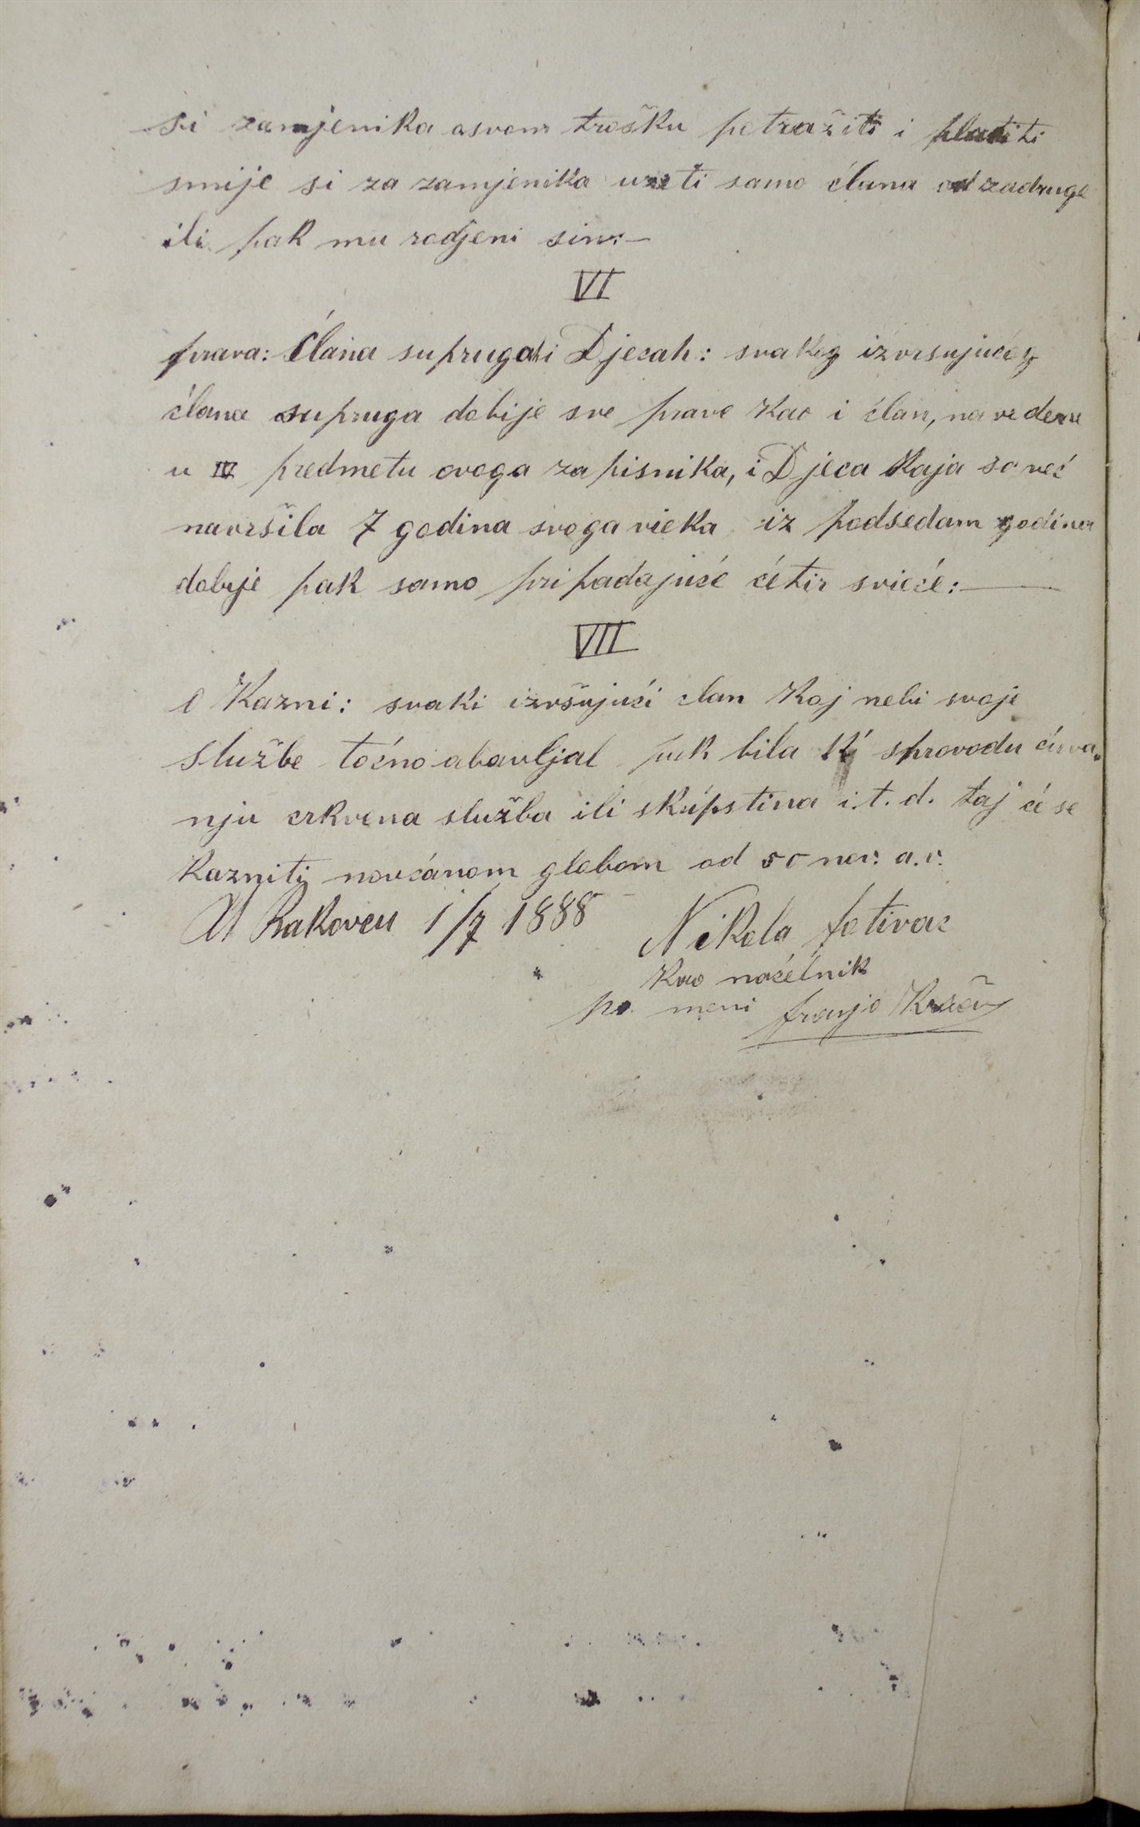 si zamjenika osvom trošku potražiti i platiti
smije si za zamjenika uzeti samo člana od zadruge
ili pak mu rodjeni sin:—
VI
prava: Člana supruga i Djecah: svakog izvršujućeg
člana supruga dobije sve prave kao i član, navedene
u IV predmetu ovoga zapisnika, i Djeca koja so već
navršila 7 godina svoga vieka iz podsedam godinah
dobije pak samo pripadajuće četir svieće:—
VII
O Kazni: svaki izvršujući član Koj nebi svoje
službe točno obavljal pak bila k sprovodu čuva
nju crkvena služba ili skupština i.t.d. taj će se
kazniti novčanom globom od 50 nov: a.v.
U Rakovcu 1/7 1888
Nikola Fotivac
kao načelnik
po meni Franjo